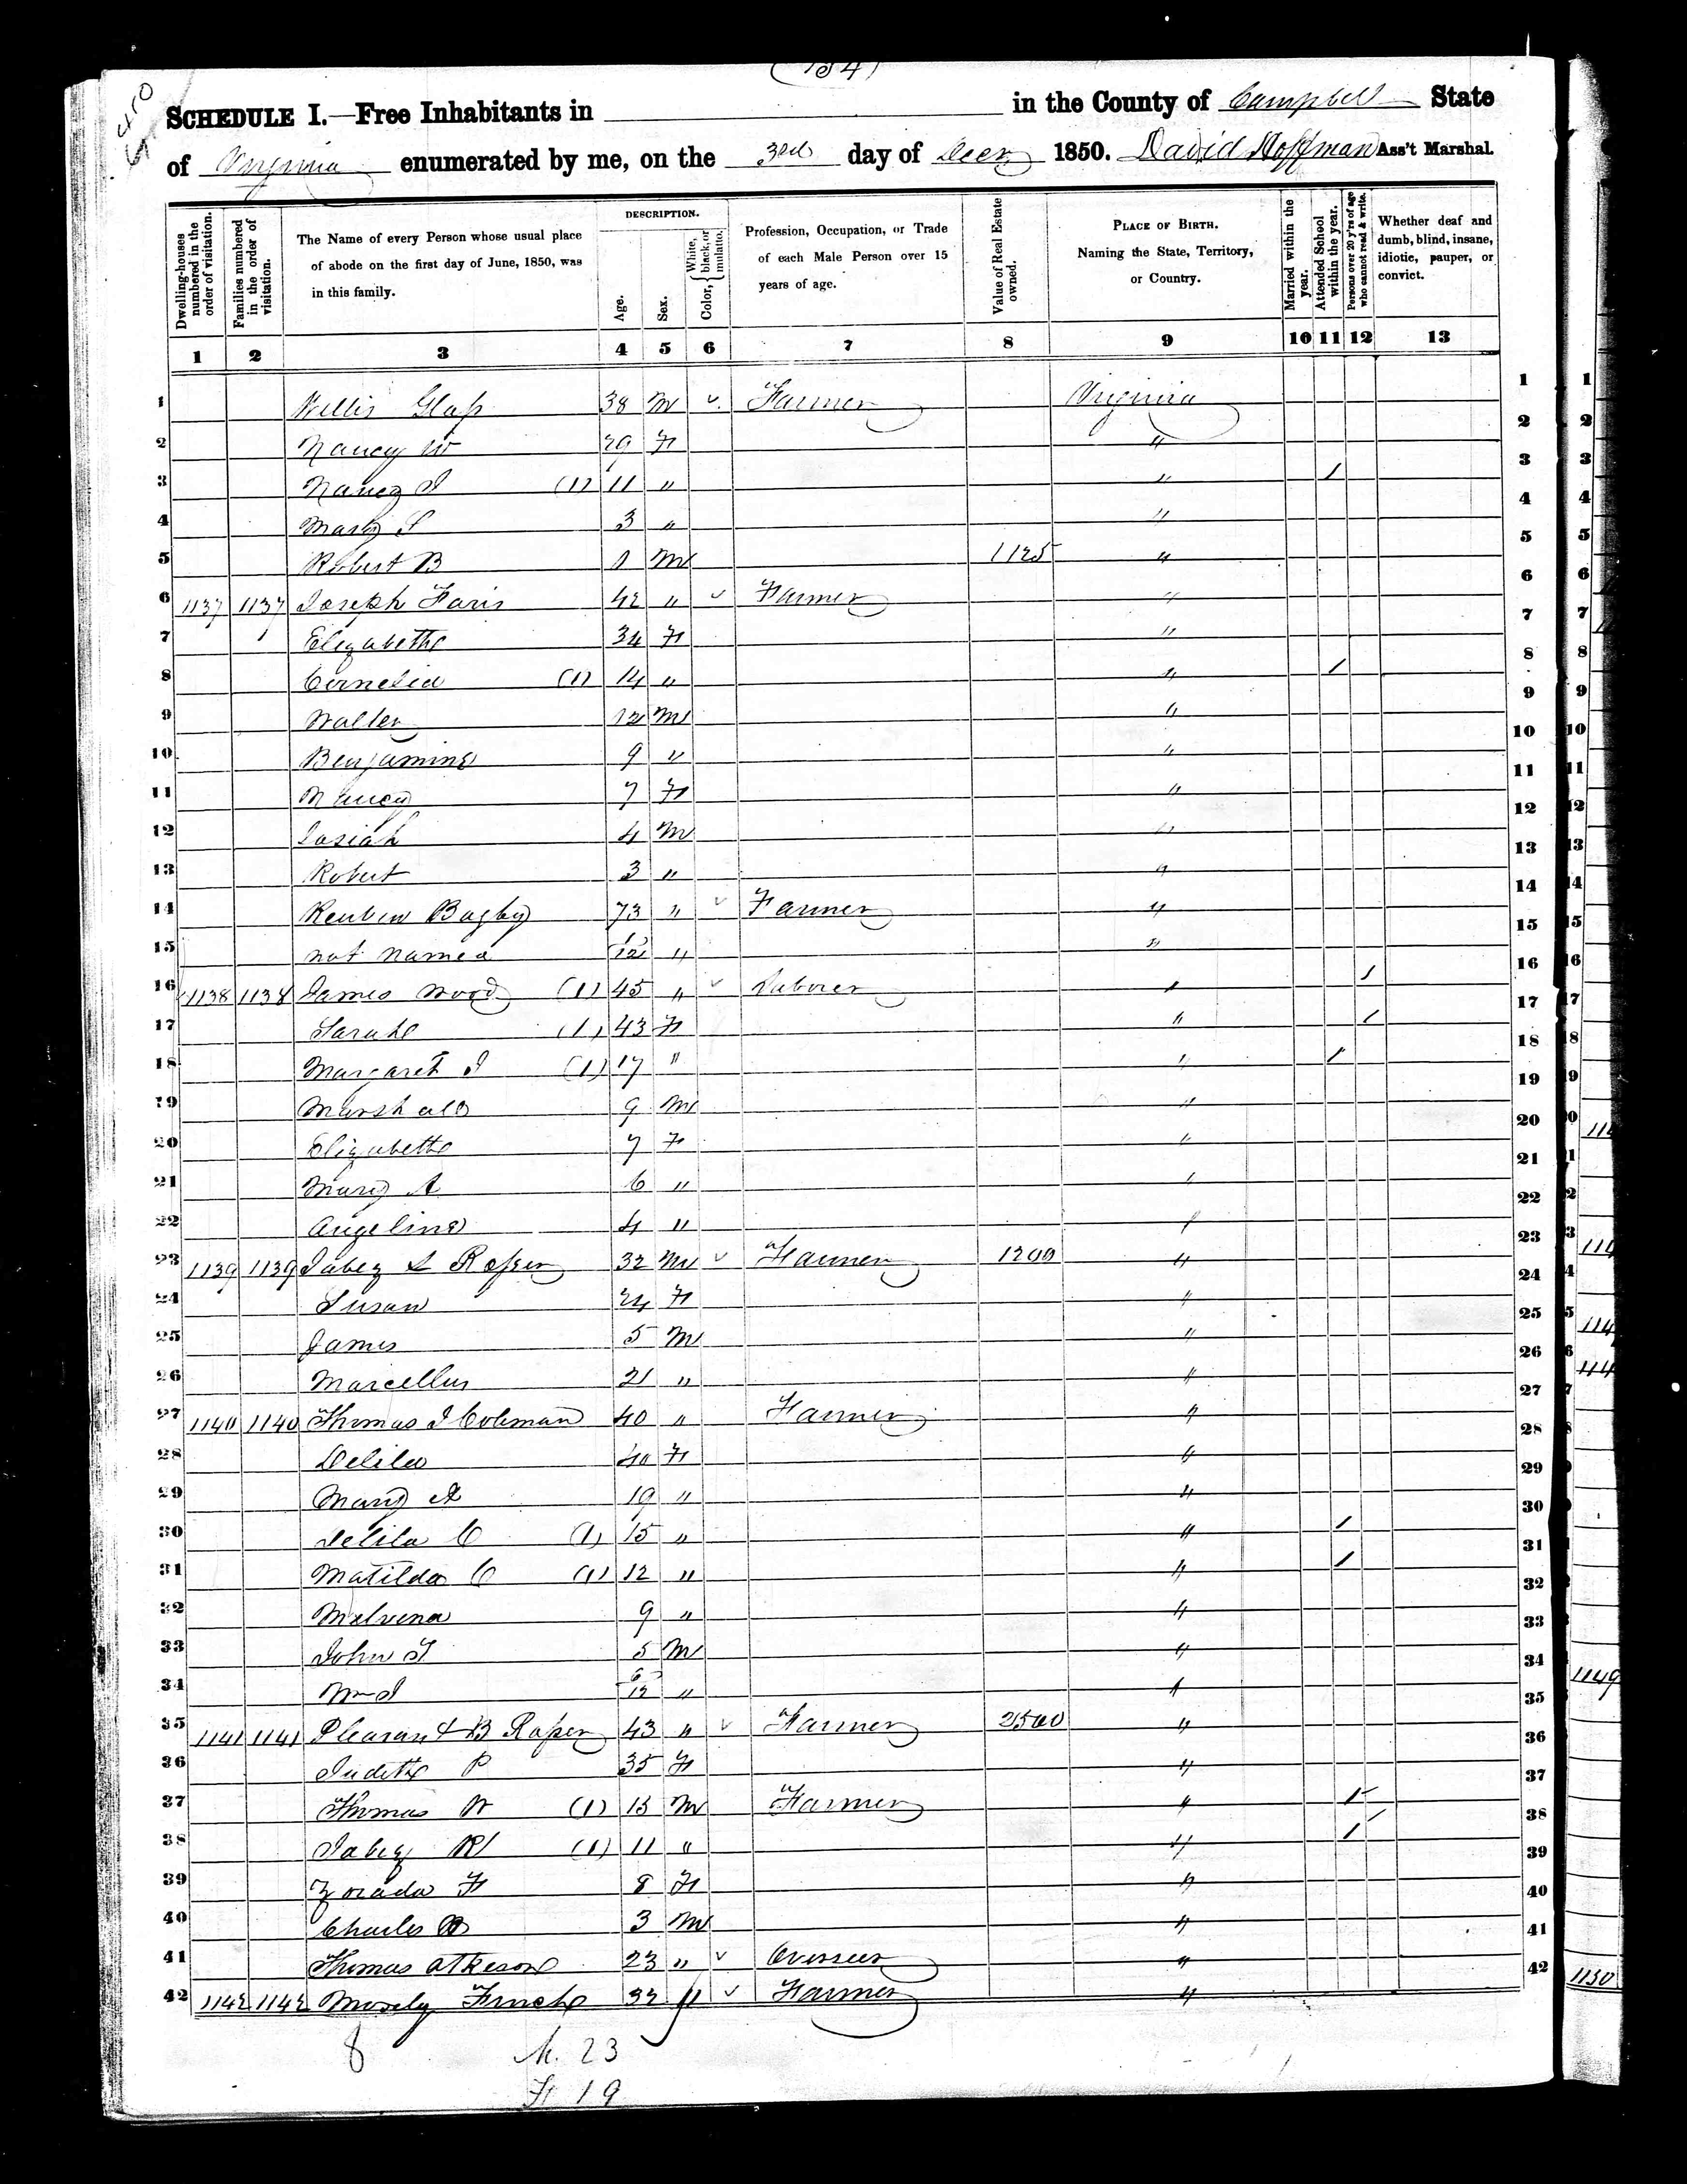 (134)
SCHEDULE I.—Free Inhabitants in in the County of Campbell State
of Virginia enumerated by me, on the 3rd day of Decr 1850. David Hoffman Ass't Marshal.
Dwelling-houses numbered in the order of visitation.
Families numbered in the order of visitation.
The Name of every Person whose usual place of abode on the first day of June, 1850, was in this family.
DESCRIPTION.
Age.
Sex.
Color, { White, black, or mulatto.
Profession, Occupation, or Trade of each Male Person over 15 years of age.
Value of Real Estate owned.
PLACE OF BIRTH. Naming the State, Territory, or Country.
Married within the year.
Attended School within the year.
Persons over 20 y'rs of age who cannot read & write.
Whether deaf and dumb, blind, insane, idiotic, pauper, or convict.
1 2 3 4 5 6 7 8 9 10 11 12 13
1 Willis Glass 38 M Farmer Virginia 1
2 Nancy W 29 F " 2
3 Nancy J (1) 11 " " 1 3
4 Mary S 3 " " 4
5 Robert B 1 M 1125 " 5
6 1137 1137 Joseph Faris 42 " Farmer " 6
7 Elizabeth 34 F " 7
8 Cornelia (1) 14 " " 1 8
9 Walter 12 M " 9
10 Benjamine 9 " " 10
11 Nancy 7 F " 11
12 Josiah 4 M " 12
13 Robert 3 " " 13
14 Reuben Bagby 73 " Farmer " 14
15 not named /12 " " 15
16 1138 1138 James Wood (1) 45 " Laborer " 1 16
17 Sarah (1) 43 F " 1 17
18 Margaret J (1) 17 " " 1 18
19 Marshall 9 M " 19
20 Elizabeth 7 F " 20
21 Mary A 6 " " 21
22 Angeline 4 " " 22
23 1139 1139 Jabez L Roper 32 M Farmer 1200 " 23
24 Susan 24 F " 24
25 James 5 M " 25
26 Marcellus 2 " " 26
27 1140 1140 Thomas J Coleman 40 " Farmer " 27
28 Delila 40 F " 28
29 Mary A 19 " " 29
30 Delila C (1) 15 " " 1 30
31 Matilda C (1) 12 " " 1 31
32 Malvena 9 " " 32
33 John T 5 M " 33
34 Wm J 6/12 " " 34
35 1141 1141 Pleasant B Roper 43 " Farmer 2500 " 35
36 Judith P 35 F " 36
37 Thomas W (1) 15 M Farmer " 1 37
38 Jabez R (1) 11 " " 1 38
39 Zorada F 8 F " 39
40 Charles 3 M " 40
41 Thomas Atkeson 23 " Overseer " 41
42 1142 1142 Mosely Finch 32 " Farmer " 42
8 M. 23
F 19